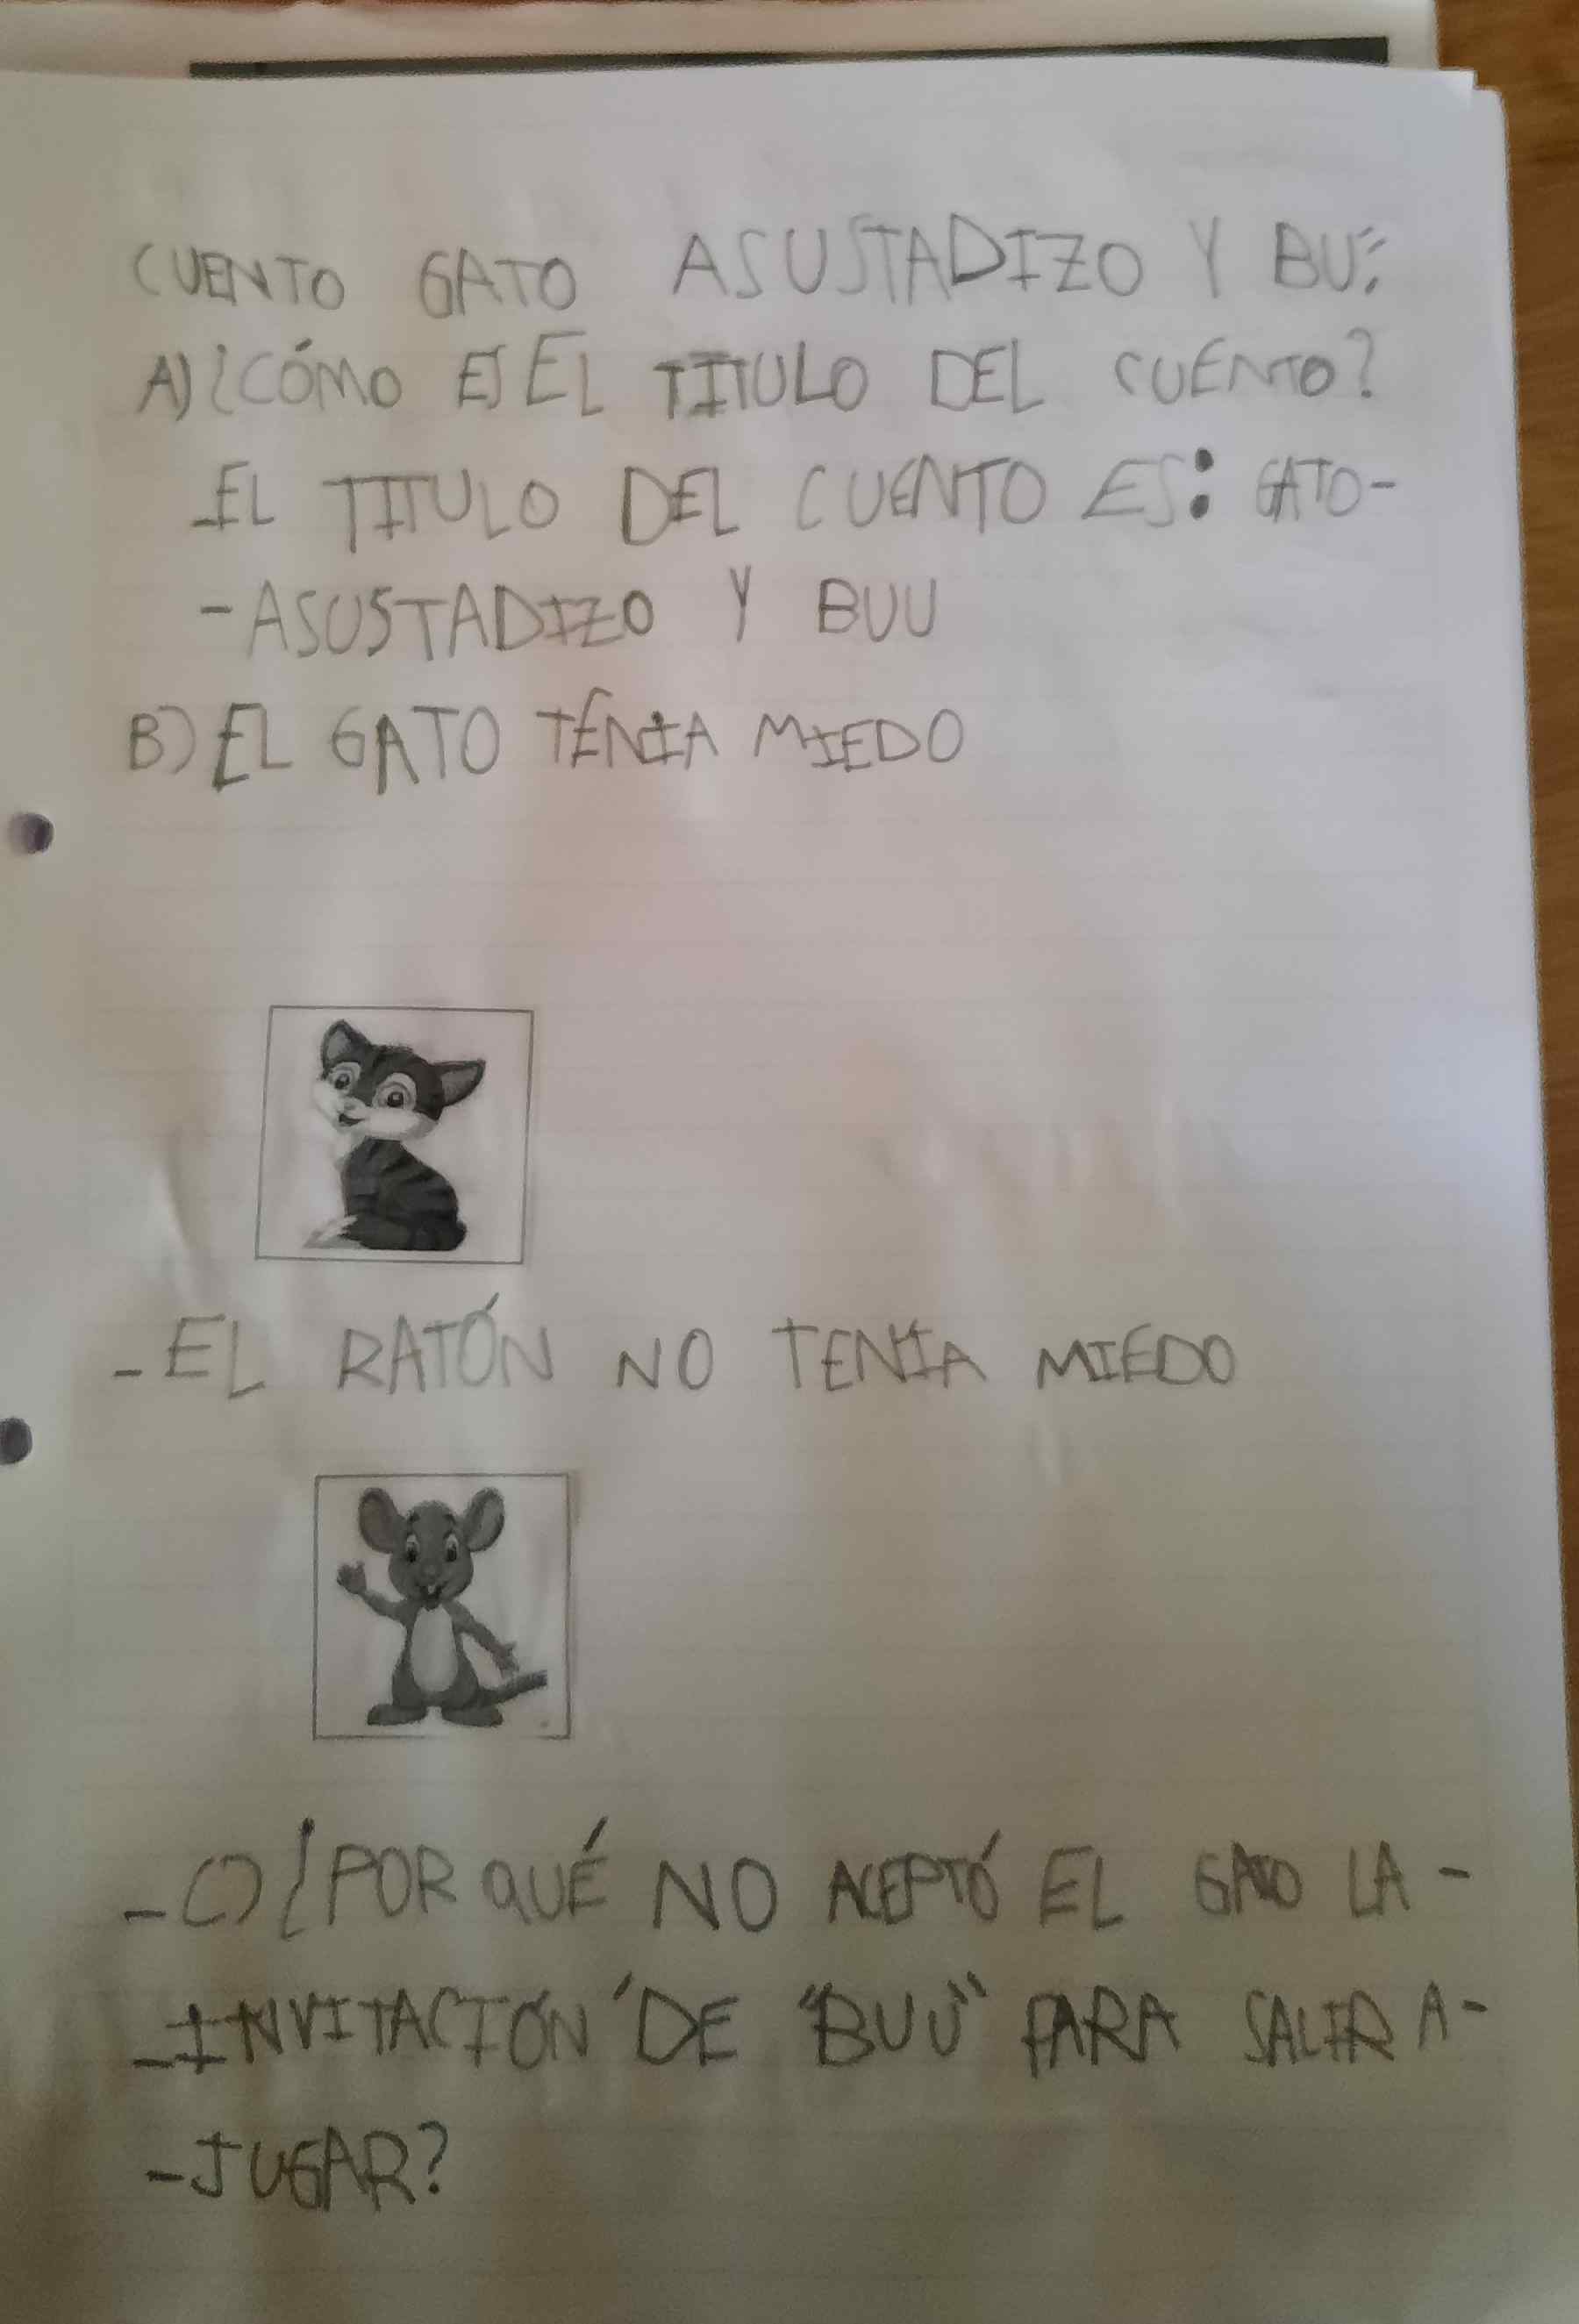 CUENTO GATO ASUSTADIZO Y BU:
A) ¿CÓMO ES EL TITULO DEL CUENTO?
-EL TITULO DEL CUENTO ES: GATO-
-ASUSTADIZO Y BUU
B) EL GATO TENIA MIEDO
-EL RATÓN NO TENIA MIEDO
-C) ¿POR QUÉ NO ACEPTÓ EL GATO LA-
-INVITACIÓN DE "BUU" PARA SALIR A-
-JUGAR?